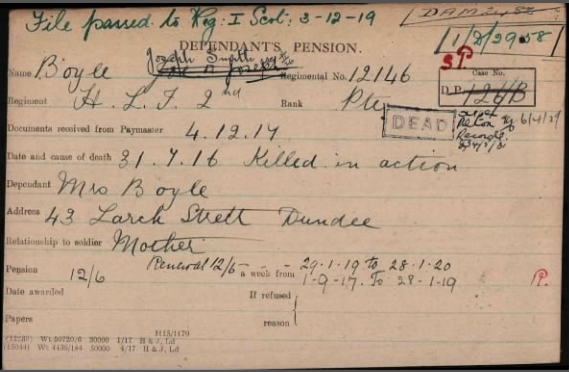 File passed to Reg: I Scot: 3-12-19
DEPENDANT'S PENSION.
11/D/2958
SP
Name Boyle Joseph Smith Regimental No. 12146
Case No.
D.P. 126/B
Regiment H. L. I. 2nd Rank Pte
DEAD
6/4/21
Documents received from Paymaster 4.12.17
Date and cause of death 31.7.16 Killed in action
Dependant Mrs Boyle
Address 43 Larch Strett Dundee
Relationship to soldier Mother
Renewal 12/6 - - - 29.1.19 to 28.1.20
Pension 12/6 a week from 1-9-17. To 28-1-19
P.
Date awarded If refused
Papers reason
H15/1170
(12239) Wt 50720/6 30000 1/17 H & J, Ld
(15044) Wt 4436/184 50000 4/17 H & J, Ld